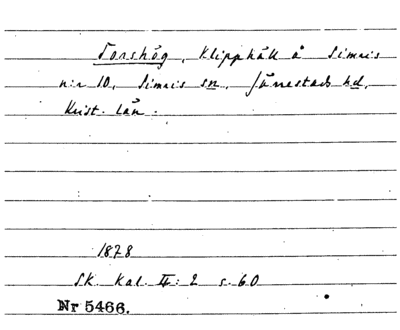 Torshög, Klippkäll å Simris
n:r 10, Simris sn, Järrestads hd,
Krist. län.
1878
Sk. Kal. II: 2 s. 60
Nr 5466.